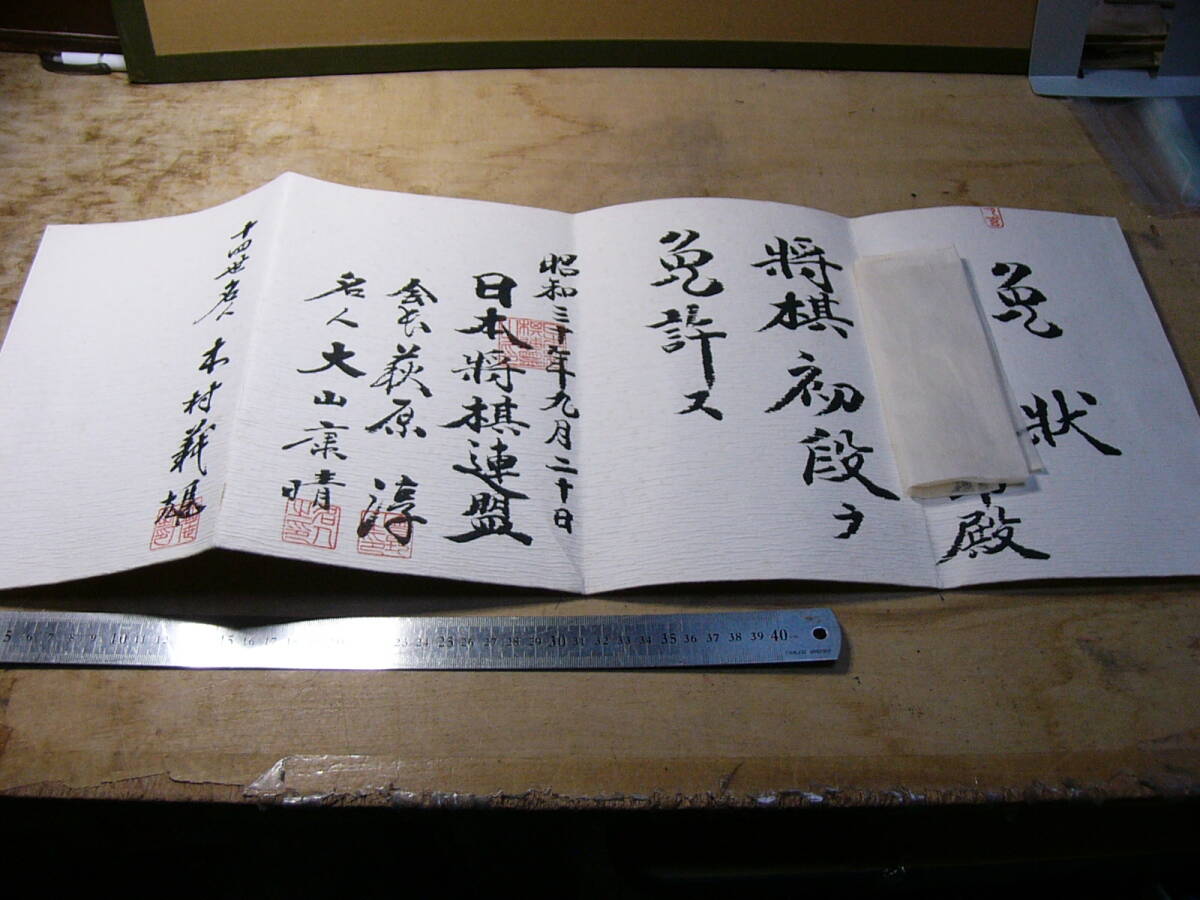 免状
殿
将棋初段ヲ
免許ス
昭和三十年九月二十日
日本将棋連盟
会長 萩原淳
名人 大山康晴
十四世名人 木村義雄
5 6 7 8 9 10 11 12 15 16 17 18 23 24 25 26 27 28 29 30 31 32 33 34 35 36 37 38 39 40